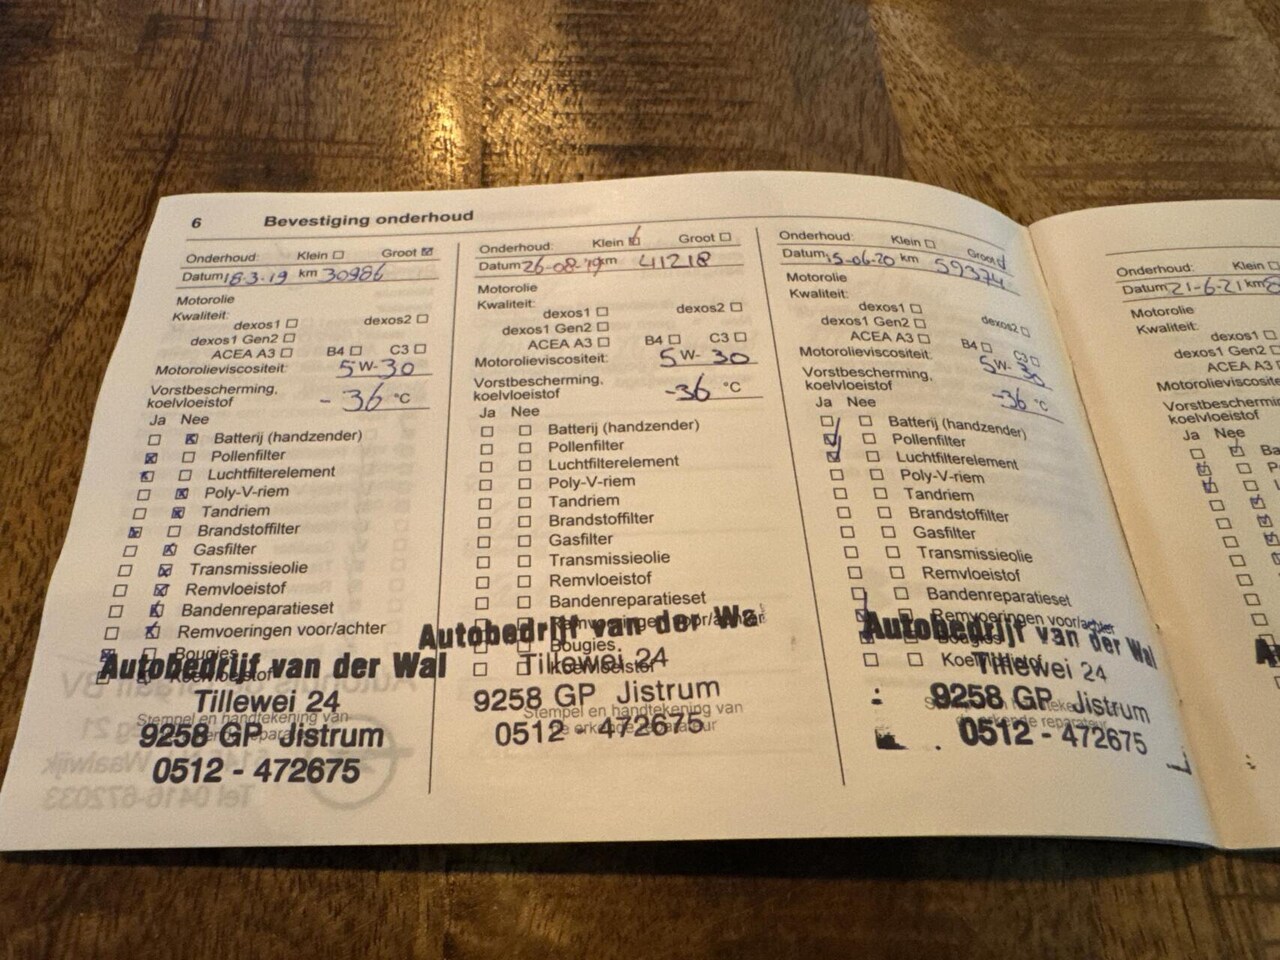 6 Bevestiging onderhoud
Onderhoud: Klein Groot
Datum 18-3-19 km 30986
Motorolie
Kwaliteit:
dexos1 dexos2
dexos1 Gen2
ACEA A3 B4 C3
Motorolieviscositeit: 5W-30
Vorstbescherming,
koelvloeistof -36 °C
Ja Nee
Batterij (handzender)
Pollenfilter
Luchtfilterelement
Poly-V-riem
Tandriem
Brandstoffilter
Gasfilter
Transmissieolie
Remvloeistof
Bandenreparatieset
Remvoeringen voor/achter
Bougies
Koelvloeistof
Autobedrijf van der Wal
Tillewei 24
Stempel en handtekening van
9258 GP Jistrum
0512 - 472675
Onderhoud: Klein Groot
Datum 26-08-19 km 41218
Motorolie
Kwaliteit:
dexos1 dexos2
dexos1 Gen2
ACEA A3 B4 C3
Motorolieviscositeit: 5W-30
Vorstbescherming,
koelvloeistof -36 °C
Ja Nee
Batterij (handzender)
Pollenfilter
Luchtfilterelement
Poly-V-riem
Tandriem
Brandstoffilter
Gasfilter
Transmissieolie
Remvloeistof
Bandenreparatieset
Remvoeringen voor/achter
Autobedrijf van der Wa
Bougies
Tillewei 24
Koelvloeistof
9258 GP Jistrum
Stempel en handtekening van
de erkende reparateur
0512 - 472675
Onderhoud: Klein Groot
Datum 15-06-20 km 59374
Motorolie
Kwaliteit:
dexos1 dexos2
dexos1 Gen2
ACEA A3 B4 C3
Motorolieviscositeit: 5W-30
Vorstbescherming,
koelvloeistof -36 °C
Ja Nee
Batterij (handzender)
Pollenfilter
Luchtfilterelement
Poly-V-riem
Tandriem
Brandstoffilter
Gasfilter
Transmissieolie
Remvloeistof
Bandenreparatieset
Remvoeringen voor/achter
Autobedrijf van der Wal
Koelvloeistof
Tillewei 24
9258 GP Jistrum
de erkende reparateur
0512 - 472675
Onderhoud: Klein
Datum 21-6-21 km
Motorolie
Kwaliteit:
dexos1
dexos1 Gen2
ACEA A3
Motorolieviscosite
Vorstbeschermin
koelvloeistof
Ja Nee
Ba